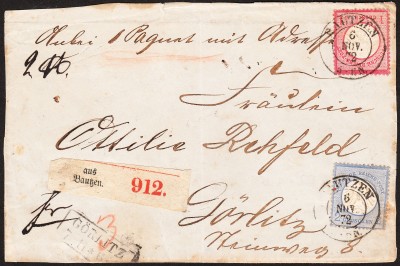 Anbei 1 Paquet mit Adresse
Fräulein
Ottilie Rehfeld
Görlitz
Steinweg 8.
aus
Bautzen.
912.
fr
BAUTZEN
6
NOV.
72
BAUTZEN
6
NOV
72
GÖRLITZ